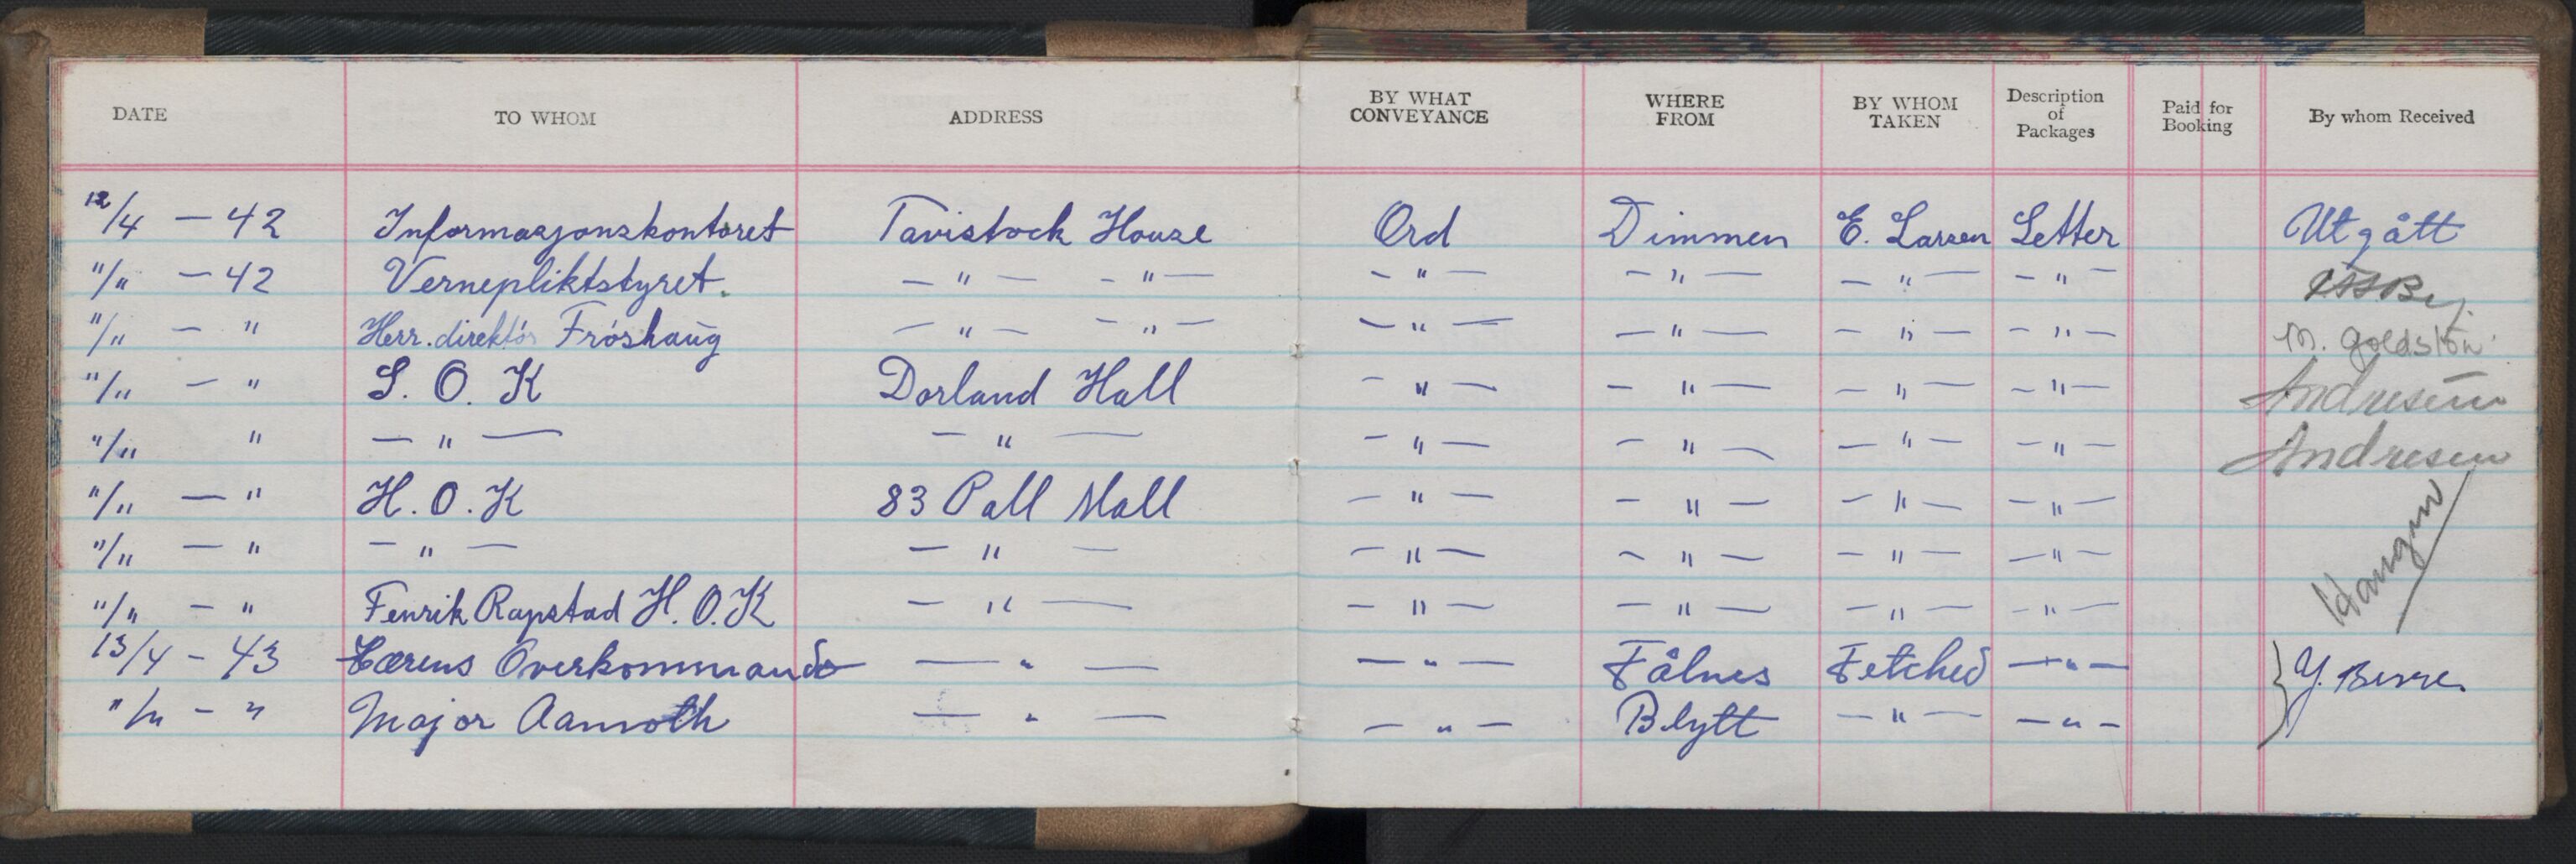 DATE TO WHOM ADDRESS BY WHAT CONVEYANCE WHERE FROM BY WHOM TAKEN Description of Packages Paid for Booking By whom Received
12/4 — 42 Informasjonskontoret Tavistock House Ord Dimmen E. Larsen Letter Utgått
"/" — 42 Vernepliktstyret. — " — - " — - " — - " — — " — - " -
"/" — " Herr. direktör Fröshaug — " — - " — — " — — " — — " — - " — M. Goldston
"/" — " S. O. K Dorland Hall - " — - " — — " — - " — Andresen
"/" " — " — — " — - " — - " — — " — - " — Andresen
"/" — " H. O. K 83 Pall Mall — " — - " — — " — - " —
"/" — " — " — — " — — " — - " — — " — — " —
"/" — " Fenrik Rapstad H. O. K — " — — " — — " — — " — - " —
13/4 - 43 Hærens Overkommando — " — — " — Fålnes Fetched — " —
"/" - " Major Aamoth — " — — " — Blytt — " — — " —